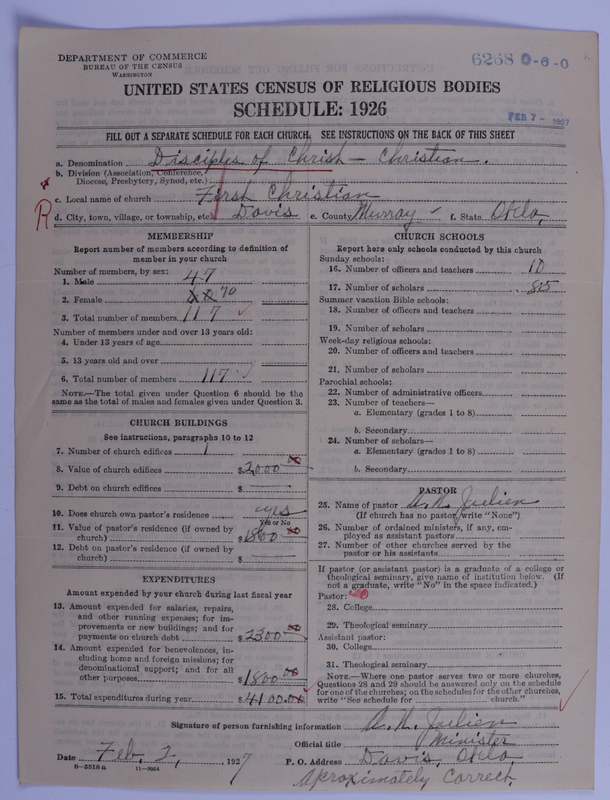 DEPARTMENT OF COMMERCE
BUREAU OF THE CENSUS
WASHINGTON
6268 0-6-0
UNITED STATES CENSUS OF RELIGIOUS BODIES
SCHEDULE: 1926
FEB 7 - 1927
FILL OUT A SEPARATE SCHEDULE FOR EACH CHURCH. SEE INSTRUCTIONS ON THE BACK OF THIS SHEET
a. Denomination Disciples of Christ - Christian.
b. Division (Association, Conference, Diocese, Presbytery, Synod, etc.)
c. Local name of church First Christian
R d. City, town, village, or township, etc. Davis e. County Murray f. State Okla,
MEMBERSHIP
Report number of members according to definition of
member in your church
Number of members, by sex:
1. Male 47
2. Female 70
3. Total number of members 117
Number of members under and over 13 years old:
4. Under 13 years of age
5. 13 years old and over
6. Total number of members 117
NOTE.—The total given under Question 6 should be
same as the total of males and females given under Question 3.
CHURCH BUILDINGS
See instructions, paragraphs 10 to 12
7. Number of church edifices 1
8. Value of church edifices $2000
9. Debt on church edifices $
10. Does church own pastor's residence yes
Yes or No
11. Value of pastor's residence (if owned by
church) $1800
12. Debt on pastor's residence (if owned by
church) $
EXPENDITURES
Amount expended by your church during last fiscal year
13. Amount expended for salaries, repairs,
and other running expenses; for im-
provements or new buildings; and for
payments on church debt $2300
14. Amount expended for benevolences, in-
cluding home and foreign missions; for
denominational support; and for all
other purposes $1800 00
15. Total expenditures during year $4100.00
CHURCH SCHOOLS
Report here only schools conducted by this church
Sunday schools:
16. Number of officers and teachers 10
17. Number of scholars
Summer vacation Bible schools:
18. Number of officers and teachers
19. Number of scholars
Week-day religious schools:
20. Number of officers and teachers
21. Number of scholars
Parochial schools:
22. Number of administrative officers
23. Number of teachers—
a. Elementary (grades 1 to 8)
b. Secondary
24. Number of scholars—
a. Elementary (grades 1 to 8)
b. Secondary
PASTOR
25. Name of pastor A. N. Julien
(If church has no pastor, write "None")
26. Number of ordained ministers, if any, em-
ployed as assistant pastors
27. Number of other churches served by the
pastor or his assistants
If pastor (or assistant pastor) is a graduate of a college or
theological seminary, give name of institution below. (If
not a graduate, write "No" in the space indicated.)
Pastor:
28. College
29. Theological seminary
Assistant pastor:
30. College
31. Theological seminary
NOTE.—Where one pastor serves two or more churches,
Questions 28 and 29 should be answered only on the schedule
for one of the churches; on the schedules for the other churches,
write "See schedule for church."
Signature of person furnishing information A. N. Julien
Official title Minister
Date Feb. 2, 1927 P. O. Address Davis, Okla,
8-5518 a 11-9054
Aproximately Correct,